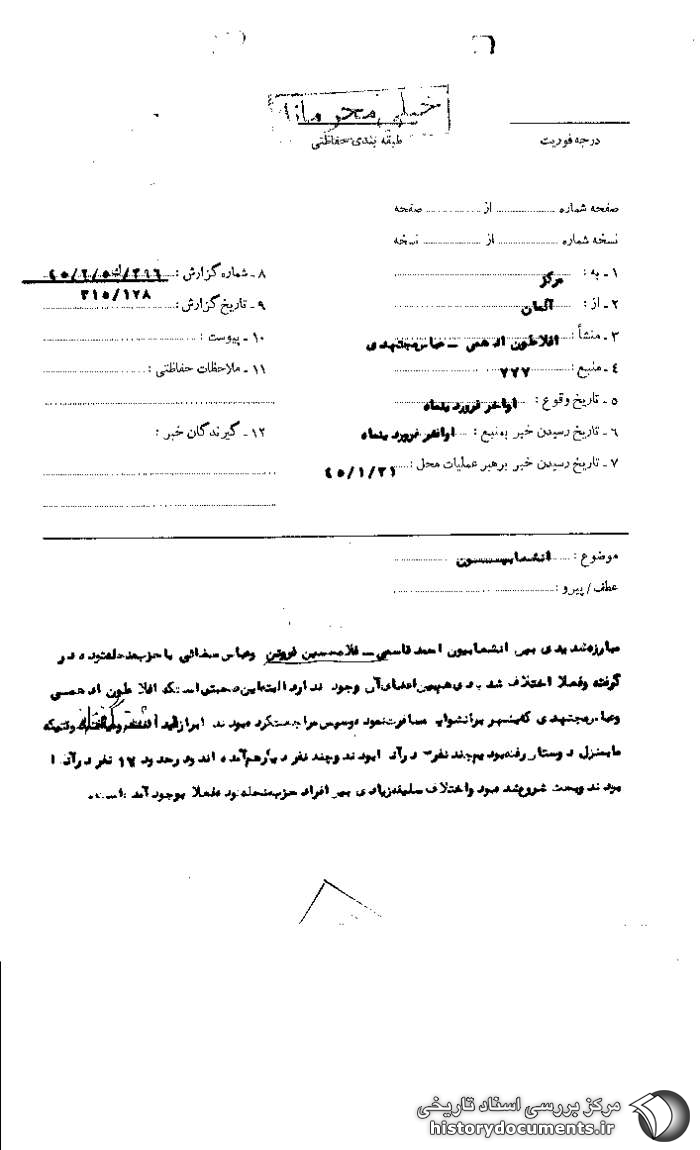 خیلی محرمانه
درجه فوریت
طبقه بندی حفاظتی
صفحه شماره از صفحه
نسخه شماره از نسخه
۱ ـ به : مرکز
۲ ـ از : آلمان
۳ ـ منشأ : افلاطون ادهمی ـ عباس مجتهدی
۴ ـ منبع : ۷۷۷
۵ ـ تاریخ وقوع : اواخر فروردینماه
۶ ـ تاریخ رسیدن خبر بمنبع : اواخر فروردینماه
۷ ـ تاریخ رسیدن خبر برهبر عملیات محل : ۴۵/۱/۳۱
۸ ـ شماره گزارش :
۳۱۵/۱۲۸
۹ ـ تاریخ گزارش :
۱۰ ـ پیوست :
۱۱ ـ ملاحظات حفاظتی :
۱۲ ـ گیرندگان خبر :
موضوع : انشعابیون
عطف / پیرو :
مبارزه شدیدی بین انشعابیون احمد قاسمی ـ غلامحسین فروتن وعباس سغائی با حزب منحله توده در
گرفته وفعلا اختلاف شدیدی بین اعضای آن وجود دارد البته این صحبتی استکه افلاطون ادهمی
وعباس مجتهدی که بشهر مسافرت نموده وسپس مراجعت کرده بودند ابراز وقتیکه
ما بمنزل دوستان رفته بودیم چند نفر در آنجا بودند وچند نفر دیگر هم آمده اند ودر حدود ۱۷ نفر در آنجا
بودند وبحث شروع شده بود واختلاف سلیقه زیادی بین افراد حزب منحله توده فعلا بوجود آمده است.
مرکز بررسی اسناد تاریخی
historydocuments.ir